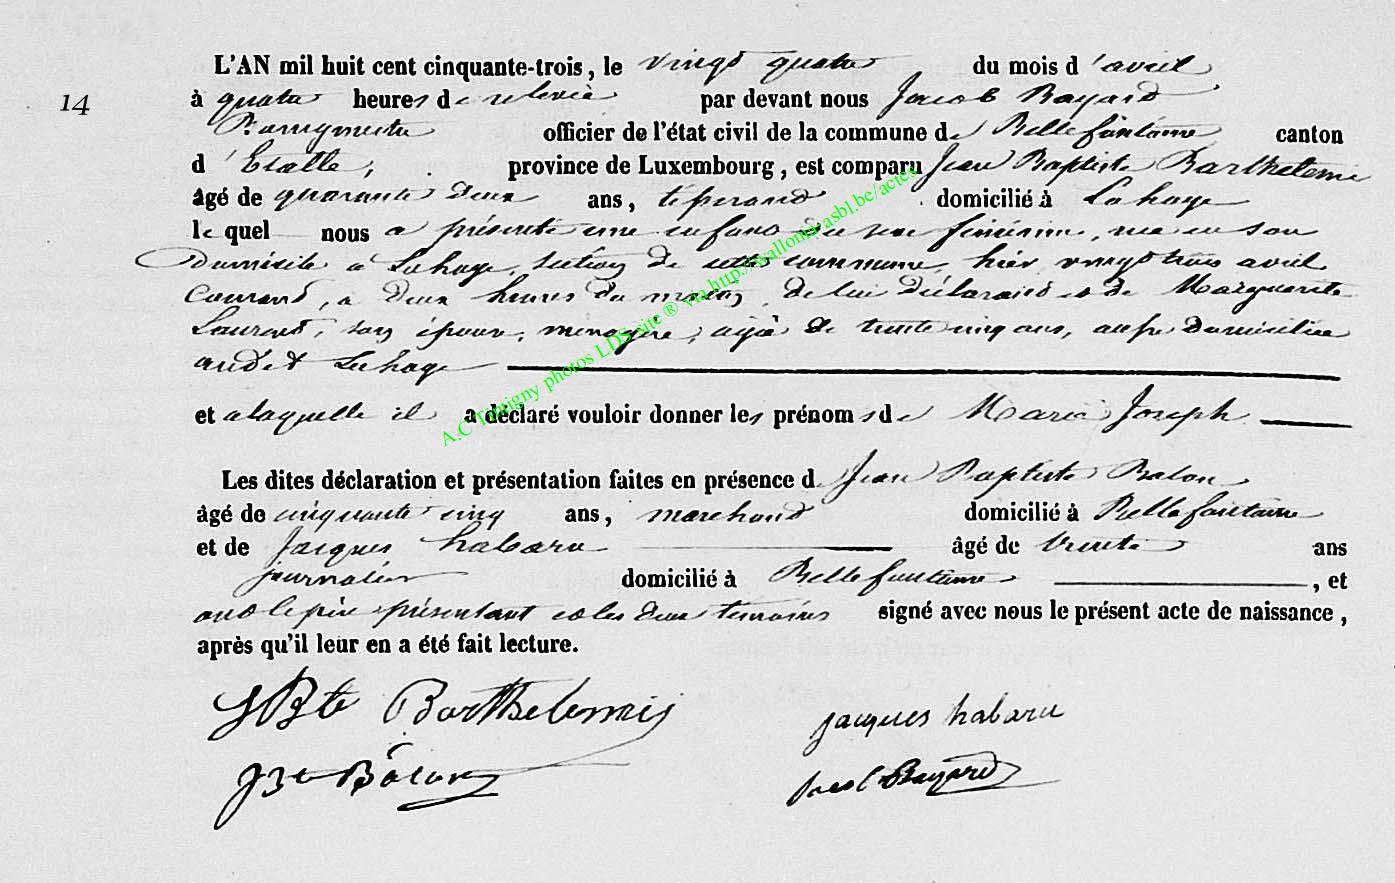 L'AN mil huit cent cinquante-trois, le vingt quatre du mois d'avril
14
à quatre heures de relevée par devant nous Jacob Bayard
Bourgmestre officier de l'état civil de la commune de Bellefontaine canton
d'Etalle, province de Luxembourg, est comparu Jean Baptiste Barthelemi
âgé de quarante deux ans, domicilié à Lahage
le quel nous a présenté une enfant du sexe féminin, née en son
Domicile à Lahage, section de cette commune, hier vingt trois avril
courant, à deux heures du matin, de lui Déclarant et de Marguerite
Laurent, son épouse, ménagère, agée de trente cinq ans, aussi domiciliée
audit Lahage
et a laquelle il a déclaré vouloir donner les prénoms de Marie Joseph
Les dites déclaration et présentation faites en présence de Jean Baptiste Balon
âgé de cinquante cinq ans, marchand domicilié à Bellefontaine
et de Jacques habaru âgé de trente ans
journalier domicilié à Bellefontaine, et
ont le père présentant et les deux temoins signé avec nous le présent acte de naissance,
après qu'il leur en a été fait lecture.
JBte Barthelemi
jacques habaru
JBte Balon
Jacob Bayard
A.C Tintigny photos LDS site ® via http://wallonia-asbl.be/actes